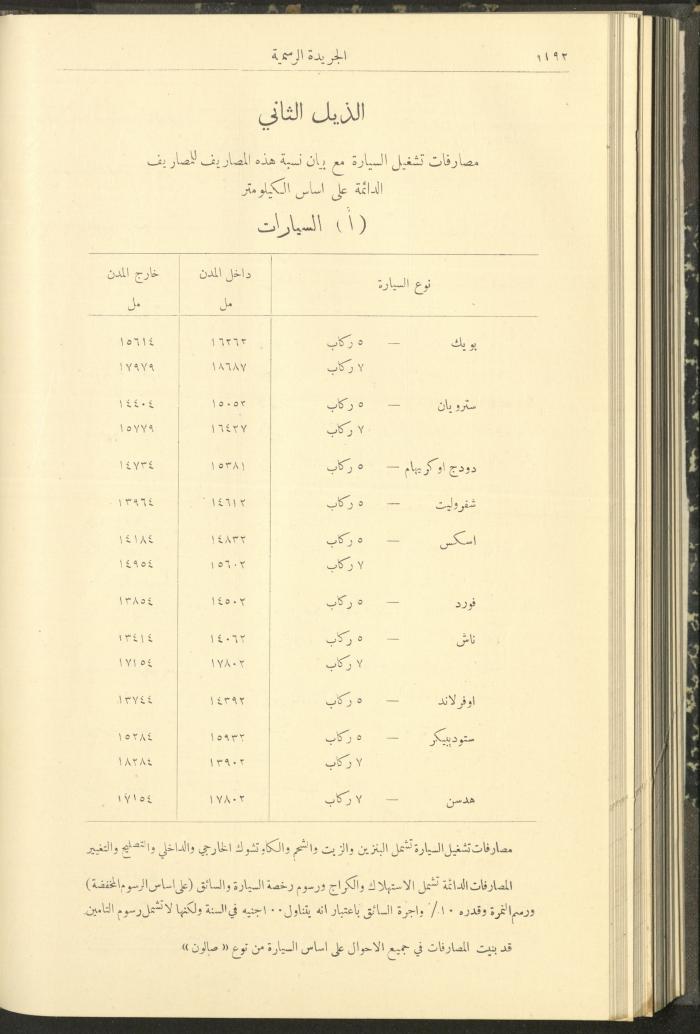 الجريدة الرسمية ١٤٩٢
الذيل الثاني
مصارفات تشغيل السيارة مع بيان نسبة هذه المصاريف للمصاريف
الدائمة على اساس الكيلومتر
(أ) السيارات
نوع السيارة داخل المدن خارج المدن
مل مل
بويك — ٥ ركاب ١٦٢٦٢ ١٥٦١٤
٧ ركاب ١٨٦٨٧ ١٧٩٧٩
سترويان — ٥ ركاب ١٥٠٥٢ ١٤٤٠٤
٧ ركاب ١٦٤٢٧ ١٥٧٧٩
دودج او كريهام — ٥ ركاب ١٥٣٨١ ١٤٧٣٤
شفروليت — ٥ ركاب ١٤٦١٢ ١٣٩٦٤
اسكس — ٥ ركاب ١٤٨٣٢ ١٤١٨٤
٧ ركاب ١٥٦٠٢ ١٤٩٥٤
فورد — ٥ ركاب ١٤٥٠٢ ١٣٨٥٤
ناش — ٥ ركاب ١٤٠٦٢ ١٣٤١٤
٧ ركاب ١٧٨٠٢ ١٧١٥٤
اوفرلاند — ٥ ركاب ١٤٣٩٢ ١٣٧٤٤
ستودبيكر — ٥ ركاب ١٥٩٣٢ ١٥٢٨٤
٧ ركاب ١٣٩٠٢ ١٨٢٨٤
هدسن — ٧ ركاب ١٧٨٠٢ ١٧١٥٤
مصارفات تشغيل السيارة تشمل البنزين والزيت والشحم والكاوتشوك الخارجي والداخلي والتصليح والتغيير
المصارفات الدائمة تشمل الاستهلاك والكراج ورسوم رخصة السيارة والسائق (على اساس الرسوم المخفضة)
ورسم النمرة وقدره ١٠٪ واجرة السائق باعتبار انه يتناول ١٠٠ جنيه في السنة ولكنها لا تشمل رسوم التامين
قد بنيت المصارفات في جميع الاحوال على اساس السيارة من نوع « صالون »